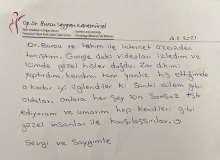 Op. Dr. Burcu Saygnan Karamürsel
16.5.2021
Dr. Burcu ve takımı ile internet üzerinden
tanıştım. Google daki videoları izledim ve
içimde güzel hisler doğdu. Zar dikimi
yaptırdım. kendimi tam yanlız his ettiğimde
o kadar iyi ilgilendiler ki sanki ailem gibi
oldular. onlara her şey için sonsuz tşk
ediyorum ve umarım hep kendileri gibi
güzel insanlar ile karşılaşırlar. ☺
Sevgi ve Saygımla